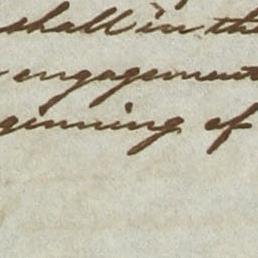 shall in the
engagement
ginning of